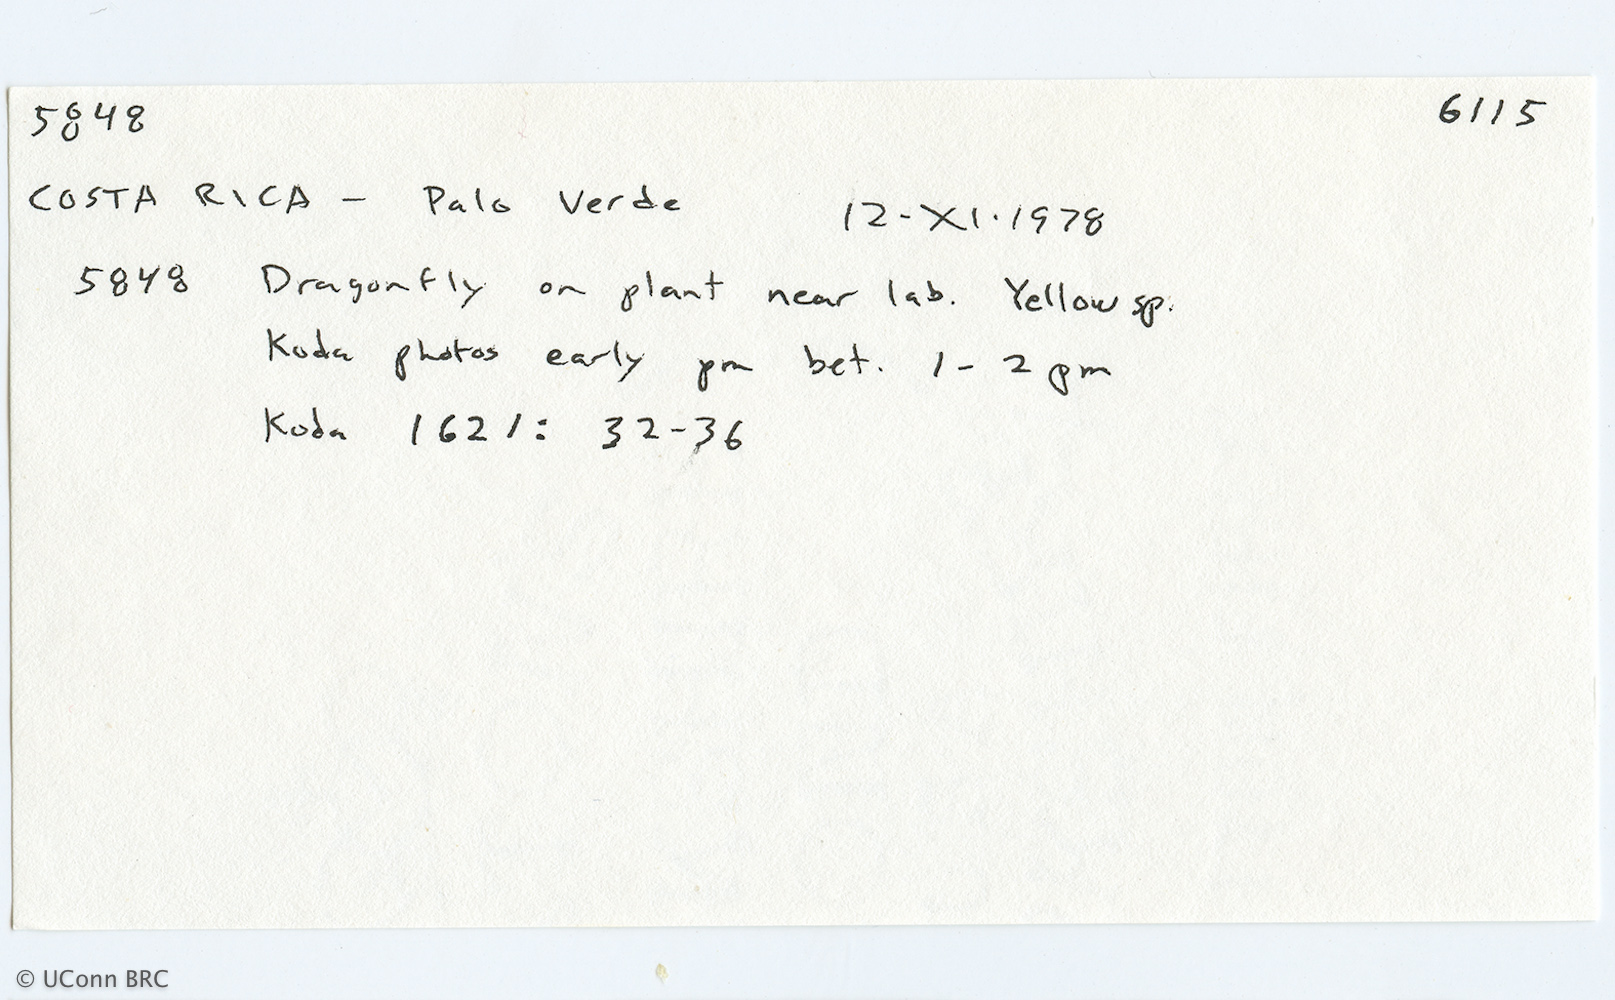 5848 6115
COSTA RICA - Palo Verde 12-XI-1978
5848 Dragonfly on plant near lab. Yellow sp.
Koda photos early pm bet. 1-2 pm
Koda 1621: 32-36
© UConn BRC